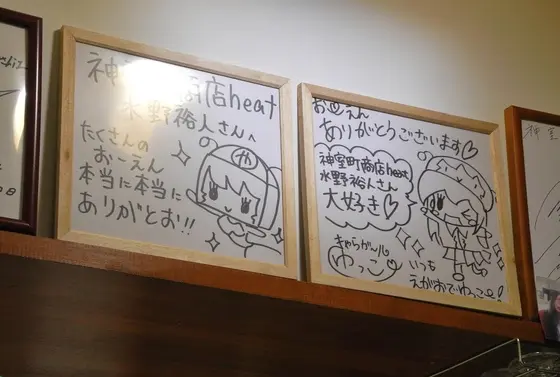 神室町商店heat
水野裕人さんへ
たくさんの
おーえん
本当に本当に
ありがとお!!
や
おうえん
ありがとうございます♡
神室町商店heat
水野裕人さん
大好き♡
きゃらがール
ゆっこ
いつも
えがおでゆっこー!
神室